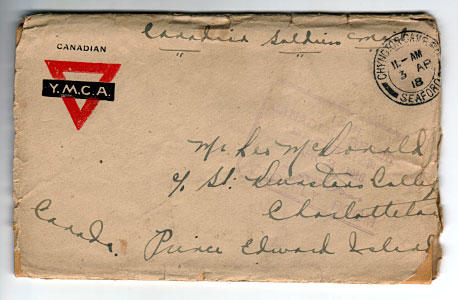 CANADIAN
Y.M.C.A.
Canadian Soldiers Mail
CHYNGTON CAMP
11.- AM
3 AP
18
SEAFORD
Mr Leo McDonald
c/o St. Dunstans Colleg
Charlottetow
Canada. Prince Edward Island